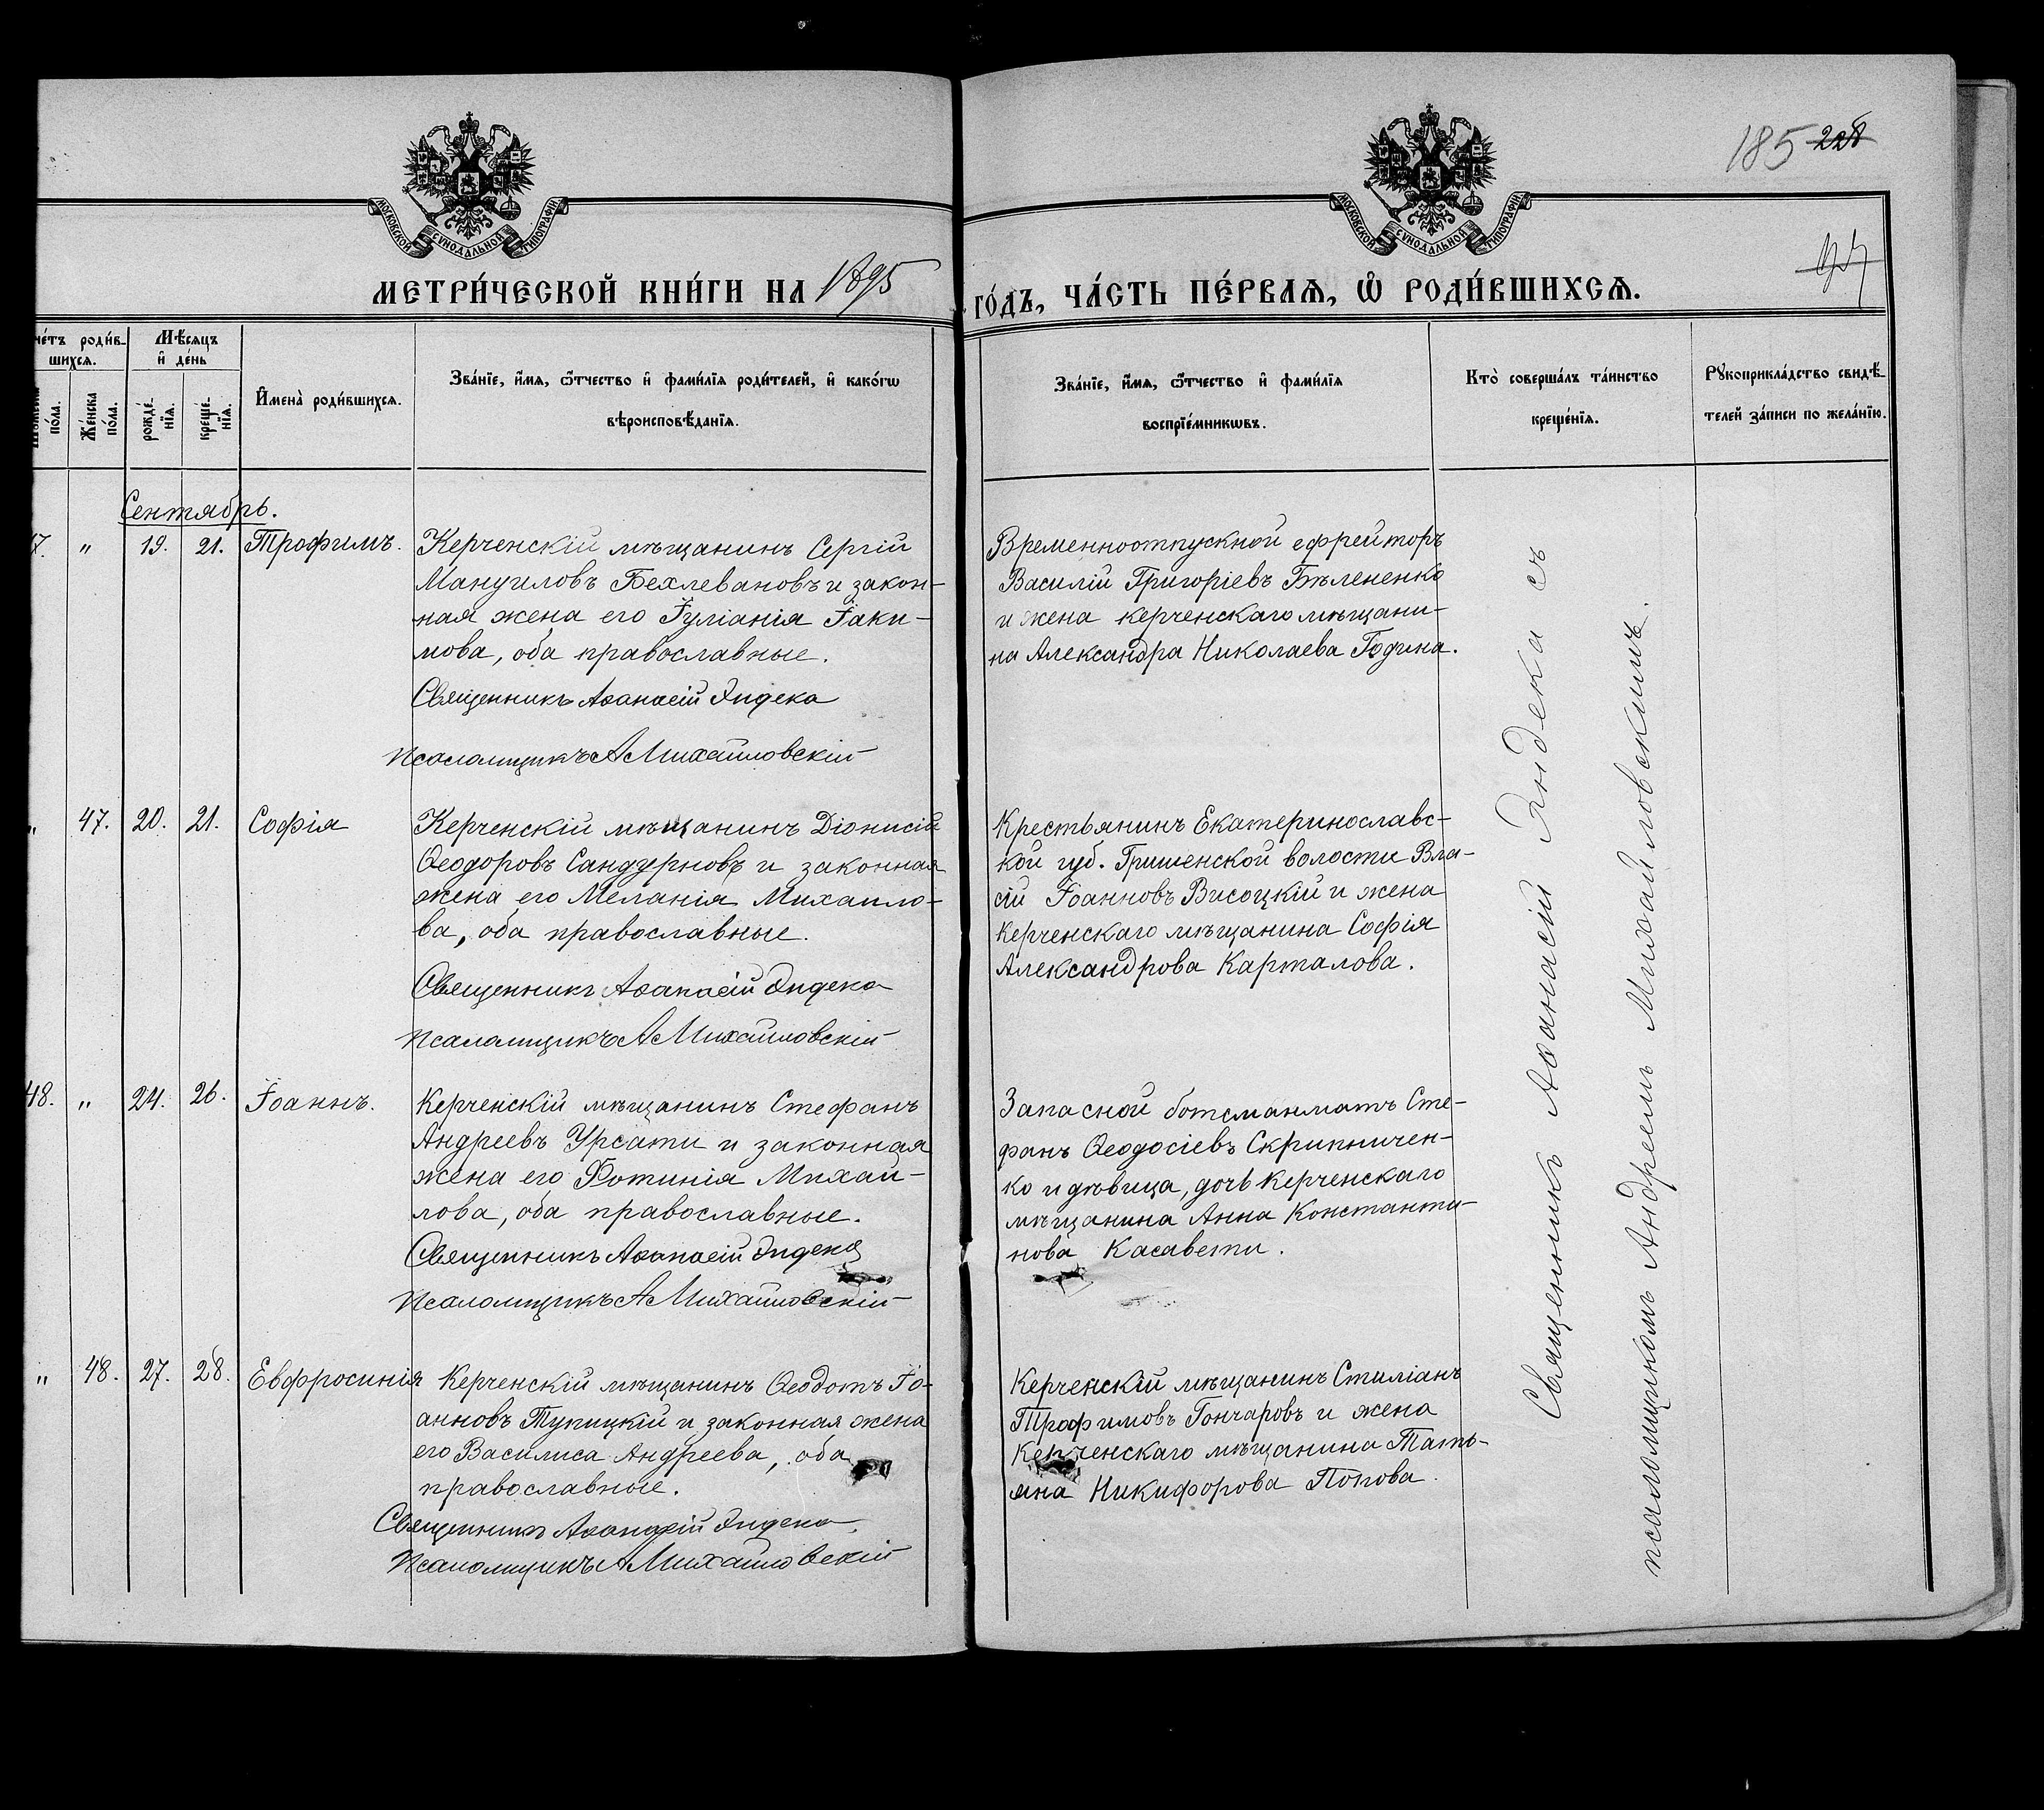 185 228
МОСКОВСКОЙ СѴНОДАЛЬНОЙ ТИПОГРАФІИ
МОСКОВСКОЙ СѴНОДАЛЬНОЙ ТИПОГРАФІИ
МЕТРИ́ЧЕСКОЙ КНИ́ГИ НА 1895
ГО́ДЪ, ЧА́СТЬ ПЕ́РВАѦ, Ѽ РОДИ́ВШИХСѦ.
че́тъ роди́в-
шихсѧ.
пола.
Же́нска
по́ла.
Мѣ́сяцъ
и҆ де́нь
рожде́-
нїѧ.
креще́-
нїѧ.
И҆мена̀ роди́вшихсѧ.
Зва́нїе, и҆́мѧ, ѻ҆́тчество и҆ фами́лїѧ роди́телей, и҆ како́гѡ
вѣроисповѣ́данїѧ.
Зва́нїе, и҆́мѧ, ѻ҆́тчество и҆ фами́лїѧ
воспрїе́мникѡвъ.
Кто̀ соверша́лъ та́инство
креще́нїѧ.
Рꙋкоприкла́дство свидѣ́-
телей за́писи по жела́нїю.
Сентябрь.
7. " 19. 21. Трофимъ.
Керченскій мѣщанинъ Сергій
Мануиловъ Бехлевановъ и закон-
ная жена его Іуліанія Іаки-
мова, оба православные.
Священникъ Аѳанасій Яндека
Псаломщикъ А Михайловскій
Временноотпускной ефрейторъ
Василій Григоріевъ Бѣлененко
и жена керченскаго мѣщани-
на Александра Николаева Година.
" 47. 20. 21. Софія
Керченскій мѣщанинъ Діонисій
Ѳеодоровъ Сандурновъ и законная
жена его Меланія Михаило-
ва, оба православные.
Священникъ Аѳанасій Яндека
Псаломщикъ А Михайловскій
Крестьянинъ Екатеринославс-
кой губ. Гришенской волости Вла-
сій Іоанновъ Висоцкій и жена
керченскаго мѣщанина Софія
Александрова Карталова.
48. " 24. 26. Іоаннъ.
Керченскій мѣщанинъ Стефанъ
Андреевъ Урсати и законная
жена его Фотинія Михаи-
лова, оба православные.
Священникъ Аѳанасій Яндека
Псаломщикъ А Михайловскій
Запасной ботсманматъ Сте-
фанъ Ѳеодосіевъ Скрипничен-
ко и дѣвица, дочь керченскаго
мѣщанина Анна Константи-
нова Касавети.
" 48. 27. 28. Евфросинія
Керченскій мѣщанинъ Ѳеодотъ Іо-
анновъ Тупицкій и законная жена
его Василиса Андреева, оба
православные.
Священникъ Аѳанасій Яндека
Псаломщикъ А Михайловскій
Керченскій мѣщанинъ Стиліанъ
Трофимовъ Гончаровъ и жена
Керченскаго мѣщанина Тать-
яна Никифорова Попова.
Священникъ Аѳанасій Яндека съ
псаломщикомъ Андреемъ Михайловскимъ.